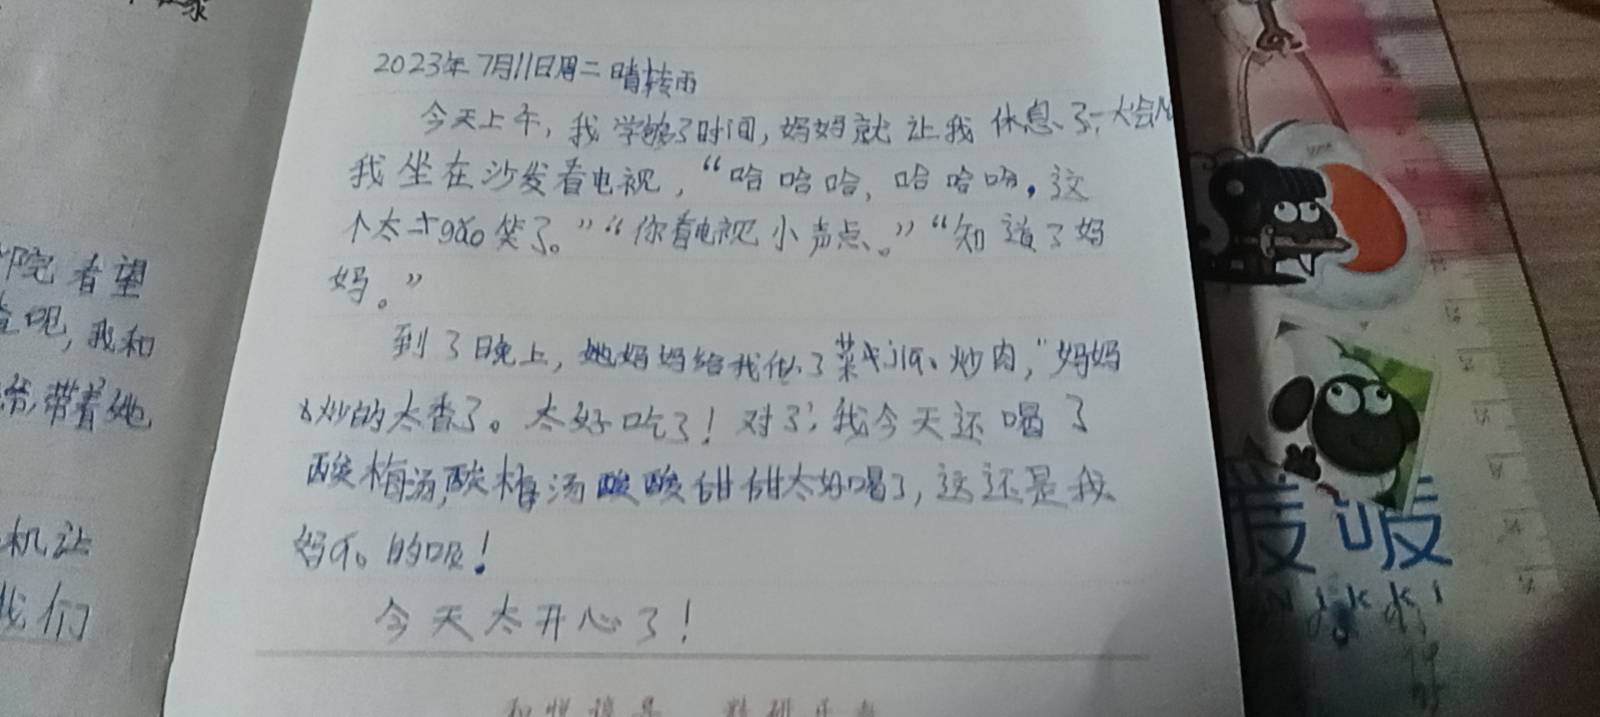 2023年7月11日周二 晴转雨
今天上午，我学够了时间，妈妈就让我休息了一大会儿
我坐在沙发看电视，“哈哈哈，哈哈哈，这
个太搞笑了。”“你看电视小声点。”“知道了妈
妈。”
到了晚上，她妈妈给我做了菜jiao炒肉，“妈妈
炒的太香了。太好吃了！对了，我今天还喝了
酸梅汤，酸梅汤酸酸甜甜太好喝了，这还是我
妈 的呢！
今天太开心了！
院看望
呢，我和
带着她
机让
我们
暖暖